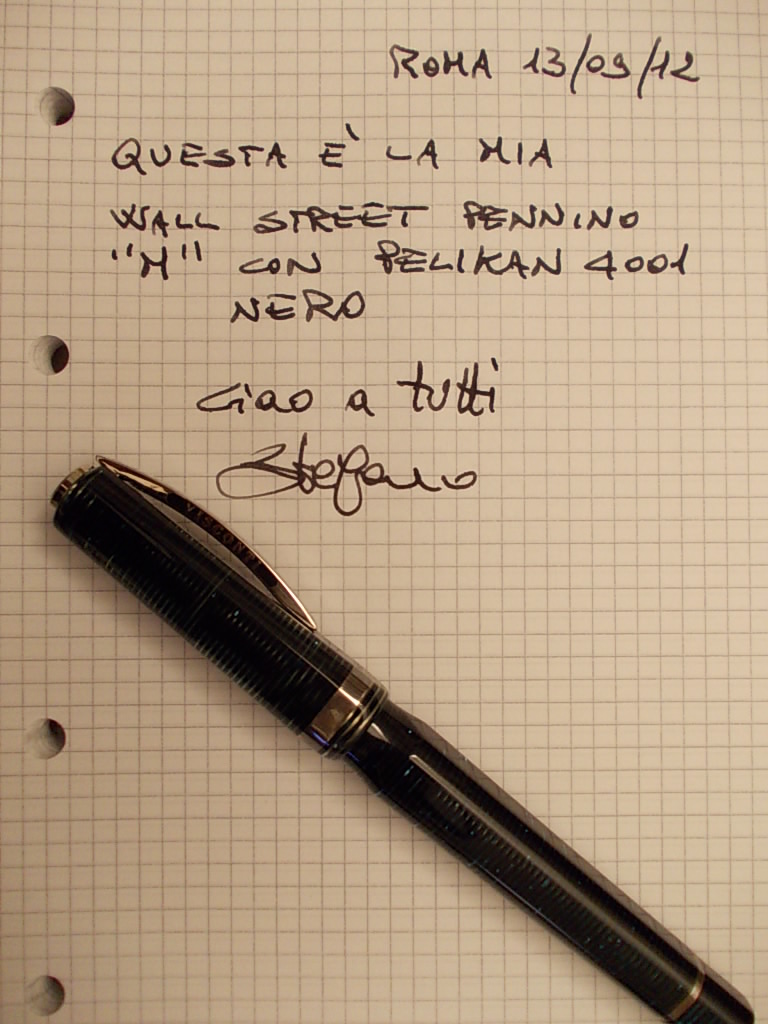 ROMA 13/09/12
QUESTA E' LA MIA
WALL STREET PENNINO
"M" CON PELIKAN 4001
NERO
Ciao a tutti
Stefano
VISCONTI